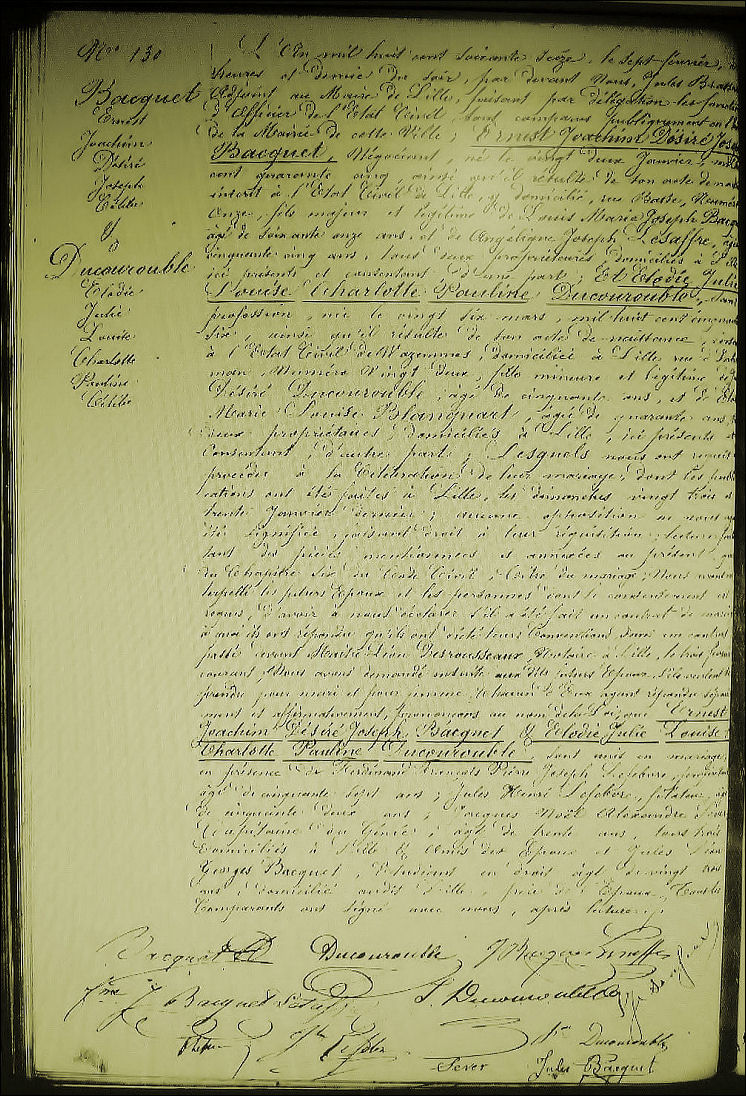 Nro 130
Bacquet
Ernest
Joachim
Désiré
Joseph
Célibre
&
Ducourouble
Elodie
Julie
Louise
Charlotte
Pauline
Célibre
L'An mil huit cent soixante seize, le sept février,
heures et demie du soir, par devant Nous, Jules
Adjoint au Maire de Lille, faisant par délégation les fonctions
d'Officier de l'Etat Civil, sont comparus publiquement en l'
de la Mairie de cette Ville ; Ernest Joachim Désiré Jose
Bacquet, Négociant, né le vingt deux Janvier, mil
cent quarante cinq ainsi qu'il résulte de son acte de nais
inscrit à l'Etat Civil de Lille, y domicilié, rue Basse, Numéro
Onze, fils majeur et légitime de Louis Marie Joseph Bacq
âgé de soixante onze ans, et de Angélique Joseph Lesaffre, âgé
cinquante cinq ans, tous deux propriétaires domiciliés à Lille
ici présents et consentant d'une part ; Et Elodie Julie
Louise Charlotte Pauline Ducourouble, sans
profession, née le vingt six mars, mil huit cent cinquante
six, ainsi qu'il résulte de son acte de naissance, inscrit
à l'Etat Civil de Wazemmes, domiciliée à Lille rue
Numéro Vingt deux, fille mineure et légitime de
Désiré Ducourouble, âgé de cinquante ans, et de
Marie Louise Blanquart, âgée de quarante ans
deux propriétaires, domiciliés à Lille, ici présents et
consentant, d'autre part ; Lesquels nous ont requis
procéder à la Célébration de leur mariage, dont les publi
cations ont été faites à Lille, les dimanches vingt trois et
trente Janvier dernier ; aucune opposition ne nous ayant
été signifiée, faisant droit à leur réquisition, lecture
tant des pièces mentionnées et annexées au présent
du Chapitre Six du Code Civil, titre du mariage, Nous avons
terpellé les futurs Epoux et les personnes dont le consentement est
requis, d'avoir à nous déclarer s'il a été fait un contrat de mariage
à quoi ils ont répondu qu'ils ont dicté leurs Conventions dans un contrat
passé devant Maître Léon Desrousseaux, Notaire à Lille, le trois février
courant ; Nous avons demandé ensuite aux dits futurs Epoux, s'ils veulent se
prendre pour mari et pour femme, chacun d'Eux ayant répondu séparé
ment et affirmativement, prononçons au nom de la Loi, que Ernest
Joachim Désiré Joseph Bacquet & Elodie Julie Louise
Charlotte Pauline Ducourouble, sont unis en mariage,
en présence de Ferdinand François Pierre Joseph Lefebvre,
âgé de cinquante sept ans ; Jules Henri Lefebvre, filateur, âgé
de cinquante deux ans ; Jacques Noël Alexandre Sever
Capitaine du Génie ; âgé de trente ans, tous trois
domiciliés à Lille & Amis des Epoux et Jules Léon
Georges Bacquet, Etudiant en droit âgé de vingt
ans, domicilié audit Lille, frère de l'Epoux, Tous les
Comparants ont signé avec nous, après lecture.
Bacquet Ducourouble Bacquet
Bacquet Lesaffre Ducourouble
Ducourouble
Sever Jules Bacquet